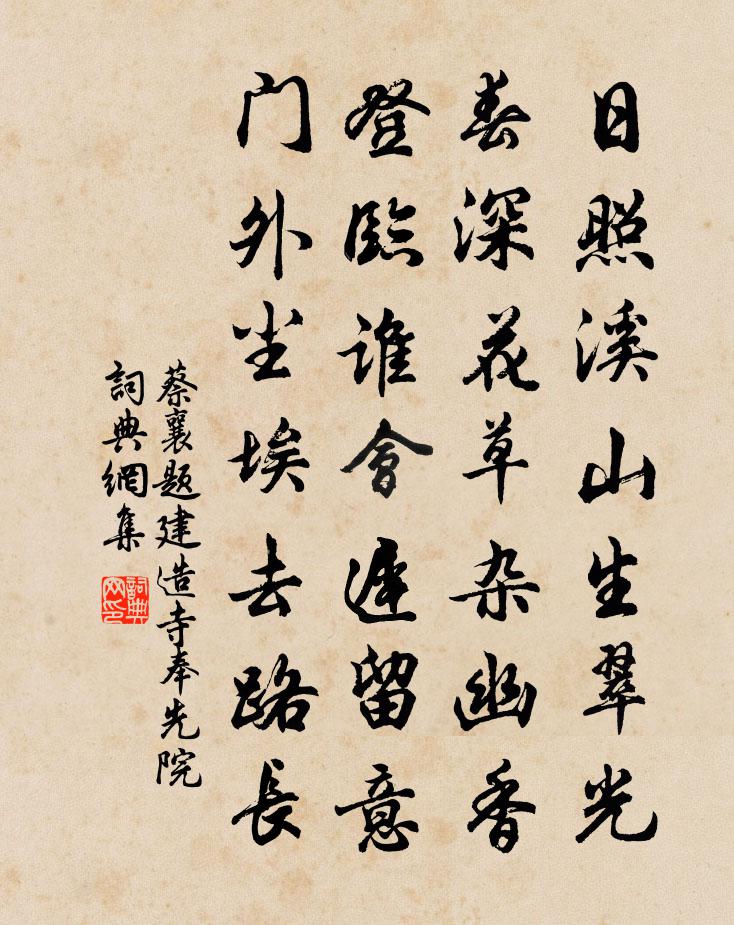 日照溪山生翠光
春深花草杂幽香
登临谁会迟留意
门外尘埃去路長
蔡襄题建造寺奉先院
詞典網集
詞典网印